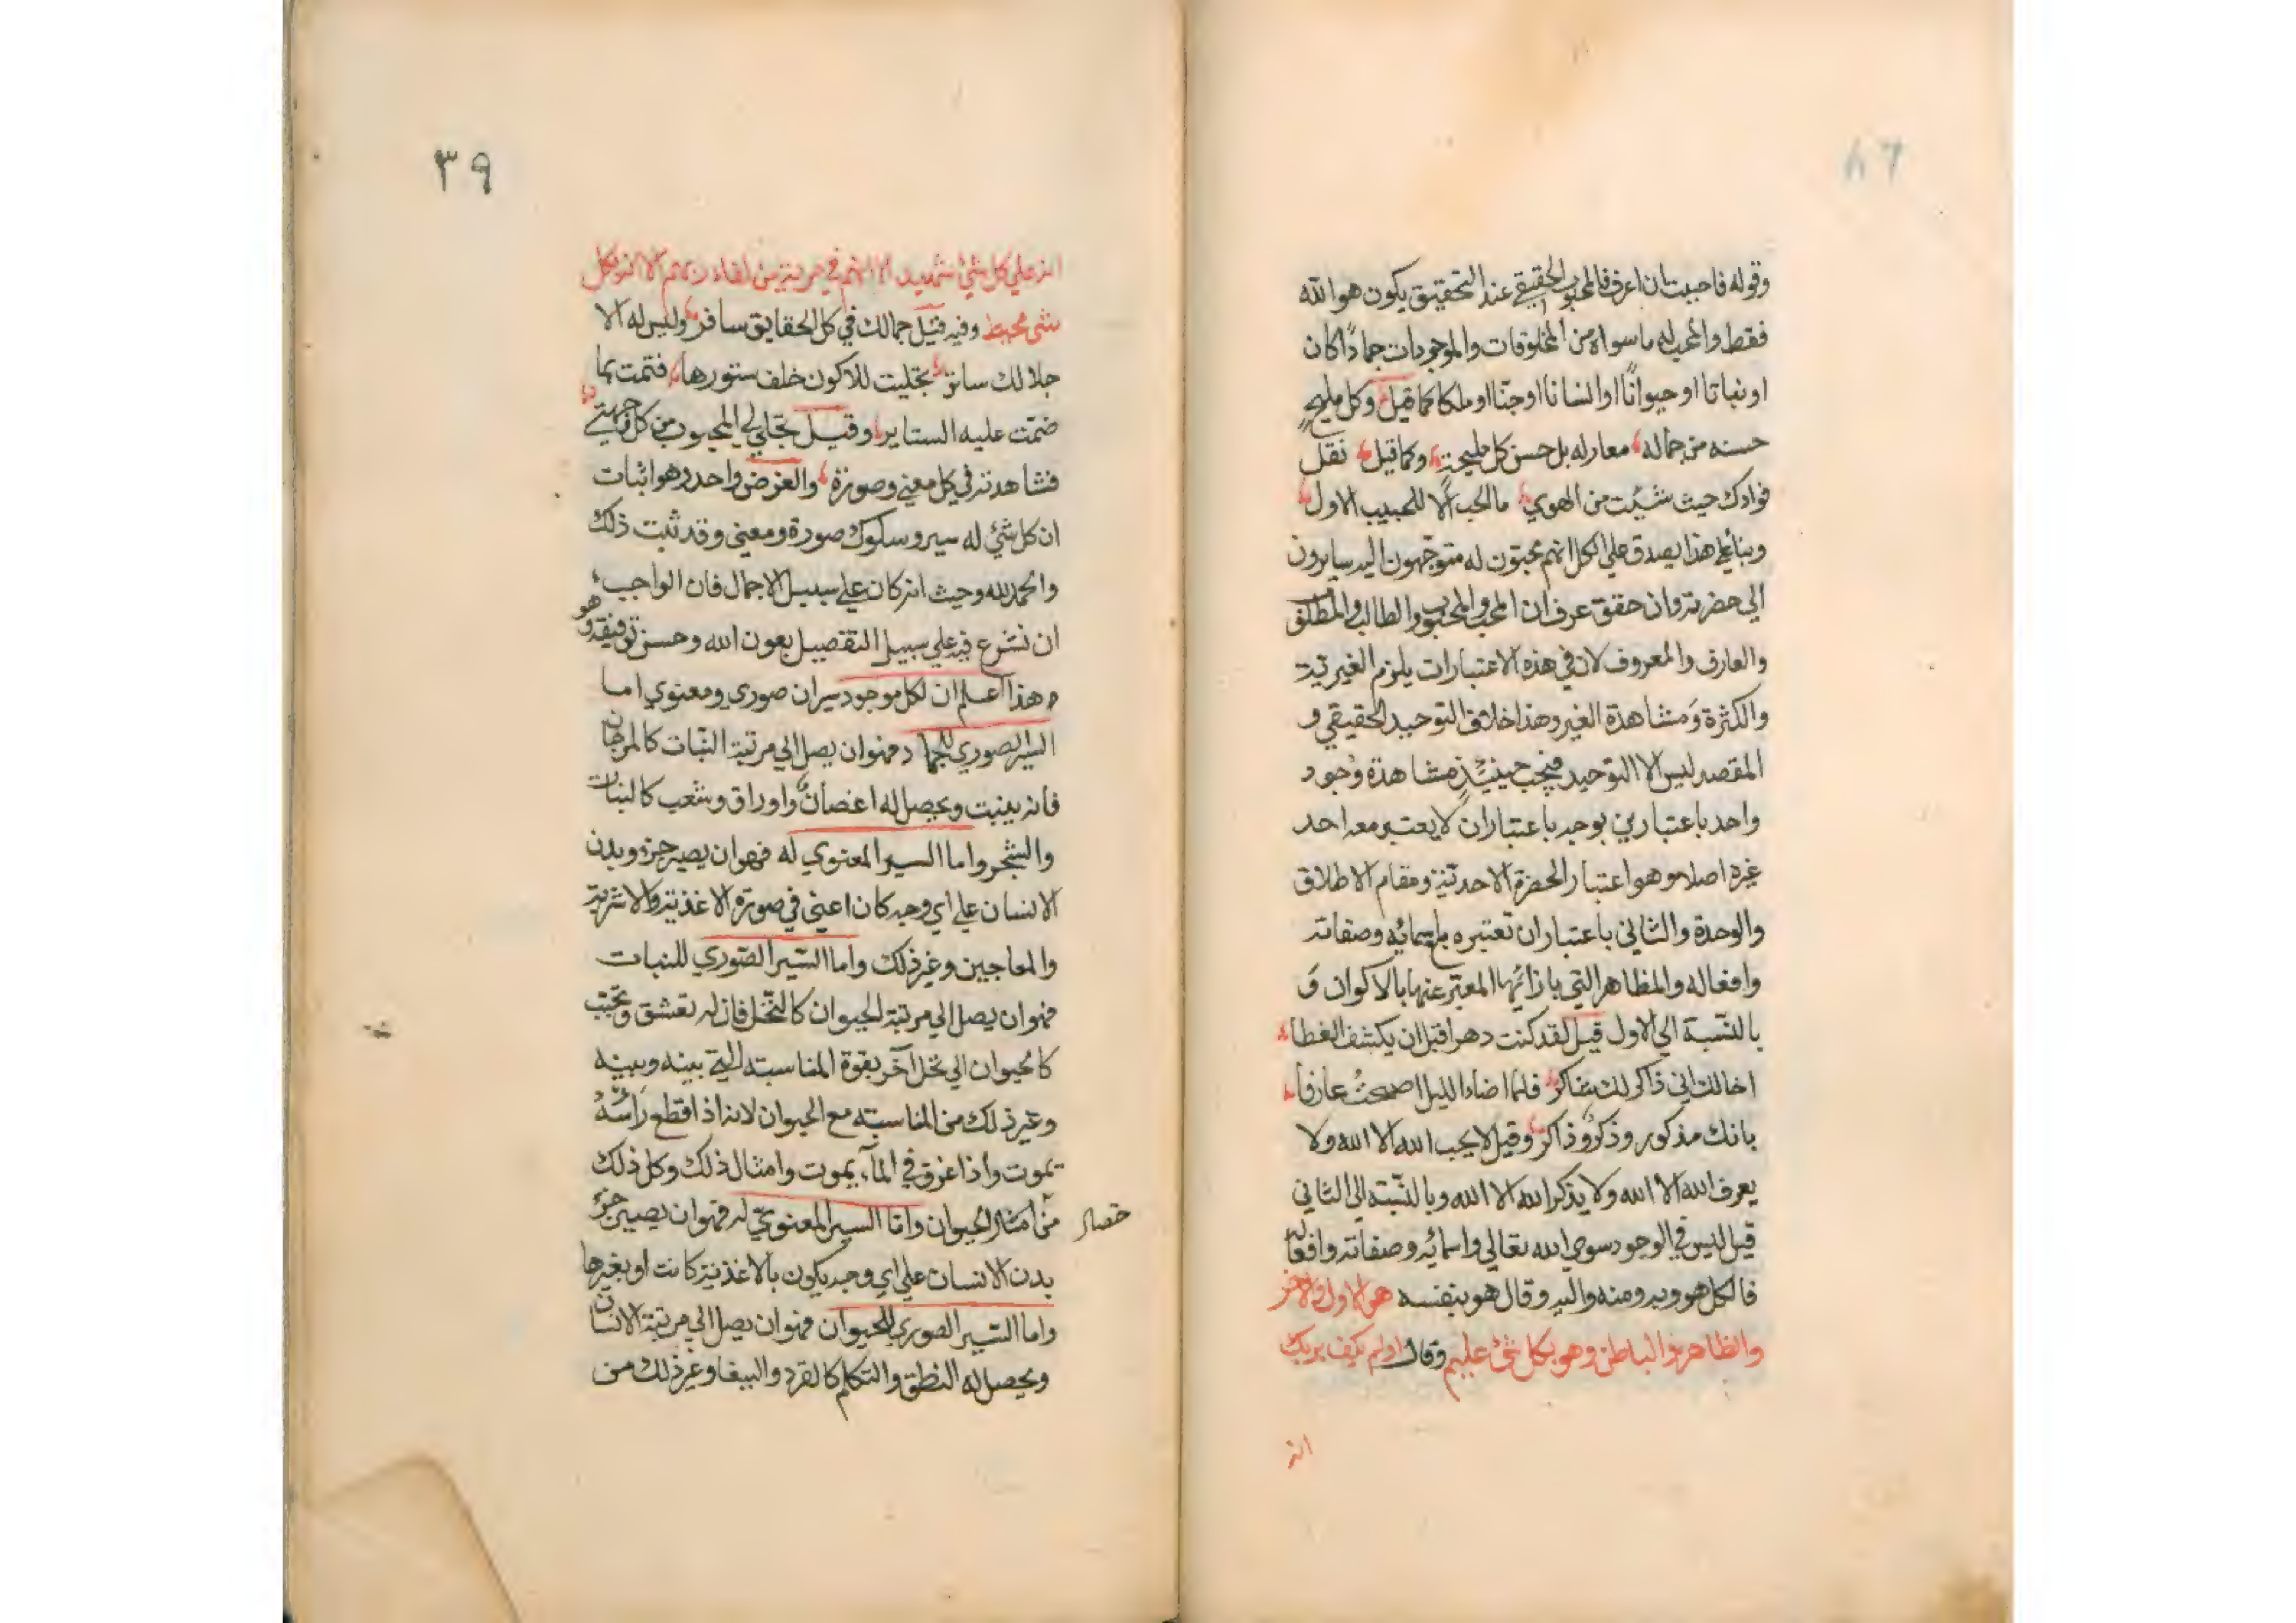 وقوله فاحببت ان اعرف فالمحبوب الحقيقي عند التحقيق يكون هو الله
فقط والمحب له ما سواه من المخلوقات والموجودات جمادًا كان
او نباتا او حيوانًا او انسانا او جنّا او ملكا كما قيل وكل مليح
حسنه من جماله معار له بل حسن كل مليحة وكما قيل نقل
فوادك حيث شئت من الهوي ما الحب الا للحبيب الاول
وبنا علي هذا يصدق علي الكل انهم محبّون له متوجّهون اليه سايرون
الي حضرته وان حقق عرف ان المحب والمحبوب والطالب والمطلوب
والعارف والمعروف لان في هذه الاعتبارات يلزم الغيرية
والكثرة ومشاهدة الغير وهذا خلاف التوحيد الحقيقي و
المقصد ليس الا التوحيد فيجب حينئذٍ مشاهدة وجود
واحد باعتبارين يوجد باعتبار ان لا يعتبر معه احد
غيره اصلا وهو اعتبار الحضرة الاحديّة ومقام الاطلاق
والوحدة والثاني باعتبار ان تعتبره باسمائه وصفاته
وافعاله والمظاهر التي بازائها المعبّر عنها بالاكوان و
بالنّسبة الي الاول قيل لقد كنت دهرا قبل ان يكشف الغطا
اخالك اني ذاكر لك شاكر فلما اضاء الليل اصبحتُ عارفا
بانك مذكور وذكرٌ وذاكر وقيل لا يحب الله الا الله ولا
يعرف الله الا الله ولا يذكر الله الا الله وبالنّسبة الي الثاني
قيل ليس في الوجود سوي الله تعالي واسمائه وصفاته وافعاله
فالكل هو وبه ومنه واليه وقال هو بنفسه هو الاول والاخر
والظاهر والباطن وهو بكل شئ عليم وقال اولم يكف بربك
انه
٣٩
انه علي كل شئ شهيد الا انهم في مرية من لقاء ربهم الا انه بكل
شئ محيط وفيه قيل جمالك في كل الحقايق سافر وليس له الا
جلالك ساتر تجليت للاكون خلف ستورها فنمت بما
ضمّت عليه الستاير وقيل تجلي لي المحبوب من كل وجهة
فشاهدته في كل معني وصورة والغرض واحد وهو اثبات
ان كل شئ له سير وسلوك صورة ومعني وقد ثبت ذلك
والحمد لله وحيث انه كان علي سبيل الاجمال فان الواجب
ان نشرع فيه علي سبيل التفصيل بعون الله وحسن توفيقه وهو
هذا اعلم ان لكل موجود سيران صوري ومعنوي اما
السير الصوري للجماد فهو ان يصل الي مرتبة النّبات كالمرجان
فانه ينبت ويحصل له اغصان واوراق وشعب كالنبات
والشجر واما السير المعنوي له فهو ان يصير جزء وبدن
الانسان علي اي وجه كان اعني في صورة الاغذية والاشربة
والمعاجين وغير ذلك واما السّير الصّوري للنبات
فهو ان يصل الي مرتبة الحيوان كالنّخل فان له تعشق وتحبّب
كالحيوان الي نخل آخر بقوة المناسبته التي بينه وبينه
وغير ذلك من المناسبته مع الحيوان لانه اذا قطع رأسه
يموت واذا غرق في المآء يموت وامثال ذلك وكل ذلك
من امثال الحيوان وامّا السير المعنوي له فهو ان يصير جزؤ
خصال
بدن الانسان علي اي وجه يكون بالاغذية كانت او بغيرها
واما السّير الصوري للحيوان فهو ان يصل الي مرتبة الانسان
ويحصل له النطق والتكلم كالقرد والببغا وغير ذلك من